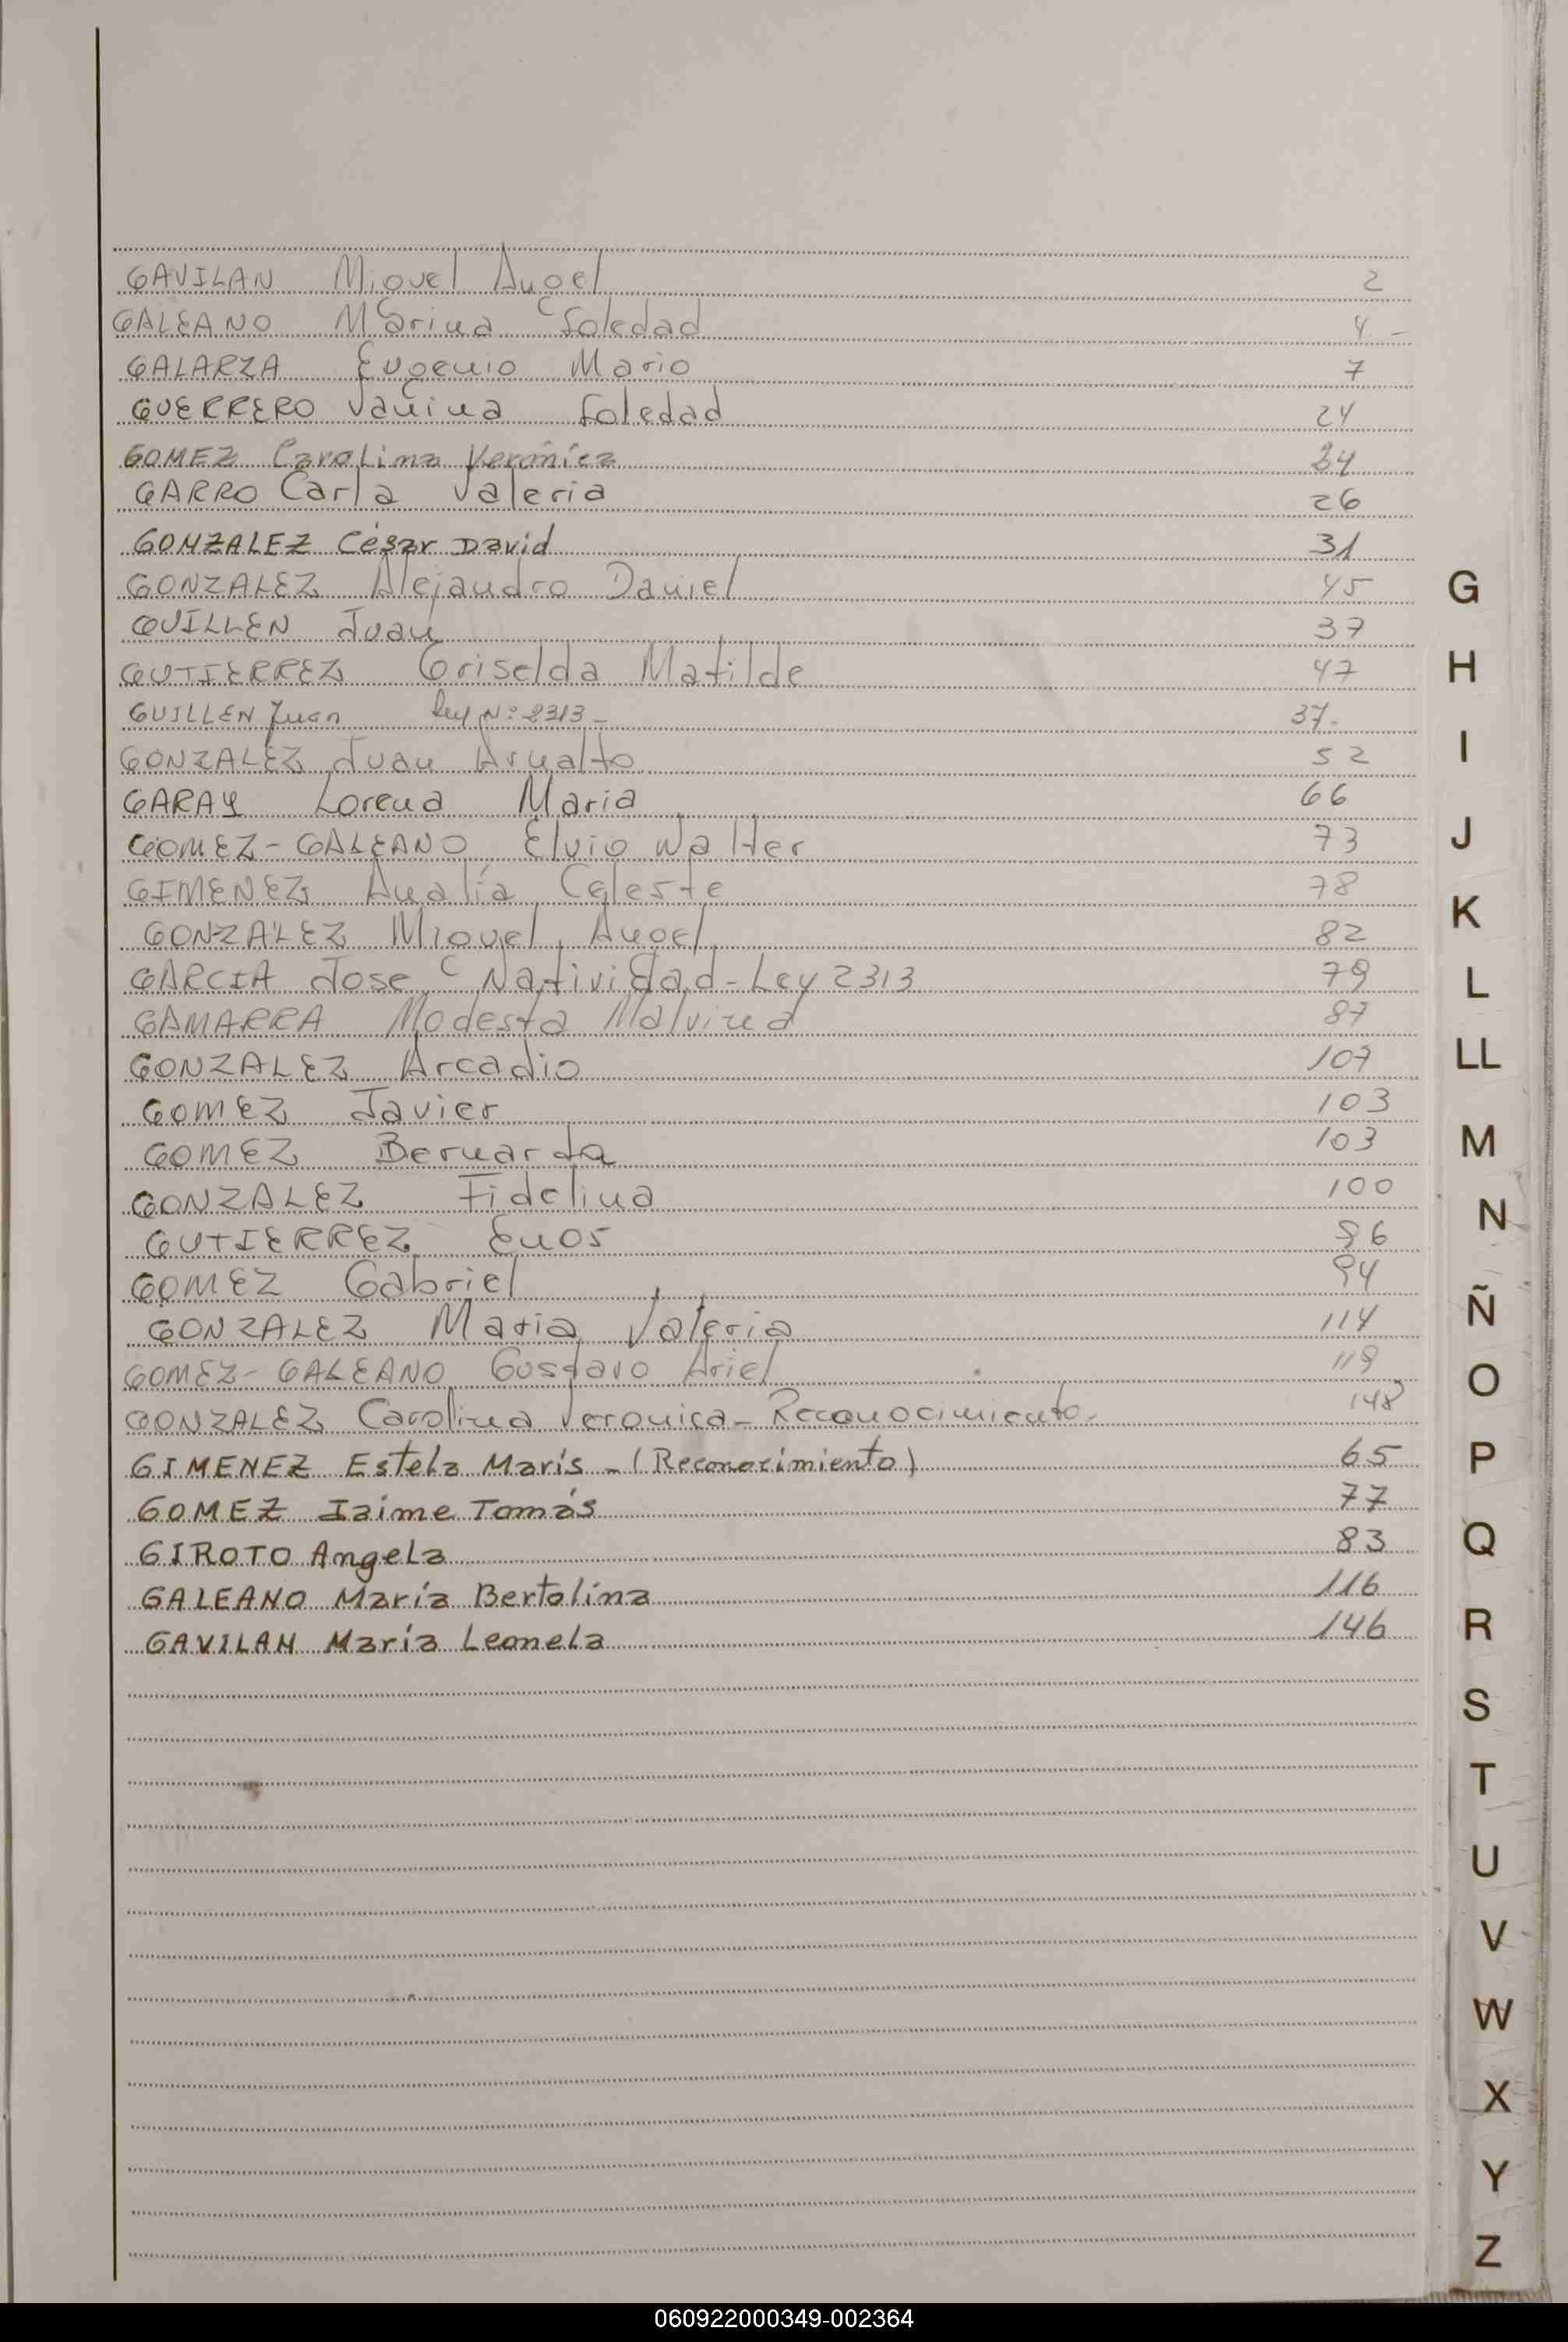 GAVILAN Miguel Angel 2
GALEANO Marina Soledad 4.-
GALARZA Eugenio Mario 7
GUERRERO Vanina Soledad 24
GOMEZ Carolina Verónica 24
GARRO Carla Valeria 26
GONZALEZ César David 31
GONZALEZ Alejandro Daniel 45
GUILLEN Juan 37
GUTIERREZ Griselda Matilde 47
GUILLEN Juan Ley Nº 2313- 37-
GONZALEZ Juan 52
GARAY Lorena Maria 66
GOMEZ-GALEANO Elvio Walter 73
GIMENEZ Analía Celeste 78
GONZALEZ Miguel Angel 82
GARCIA Jose Natividad-Ley 2313 79
GAMARRA Modesta Malvina 87
GONZALEZ Arcadio 107
GOMEZ Javier 103
GOMEZ Bernarda 103
GONZALEZ Fidelina 100
GUTIERREZ Enos 96
GOMEZ Gabriel 94
GONZALEZ Maria Valeria 114
GOMEZ-GALEANO Gustavo Ariel 119
GONZALEZ Carolina Veronica-Reconocimiento- 148
GIMENEZ Estela Maris-(Reconocimiento) 65
GOMEZ Jaime Tomás 77
GIROTO Angela 83
GALEANO María Bertolina 116
GAVILAN María Leonela 146
G
H
I
J
K
L
LL
M
N
Ñ
O
P
Q
R
S
T
U
V
W
X
Y
Z
060922000349-002364